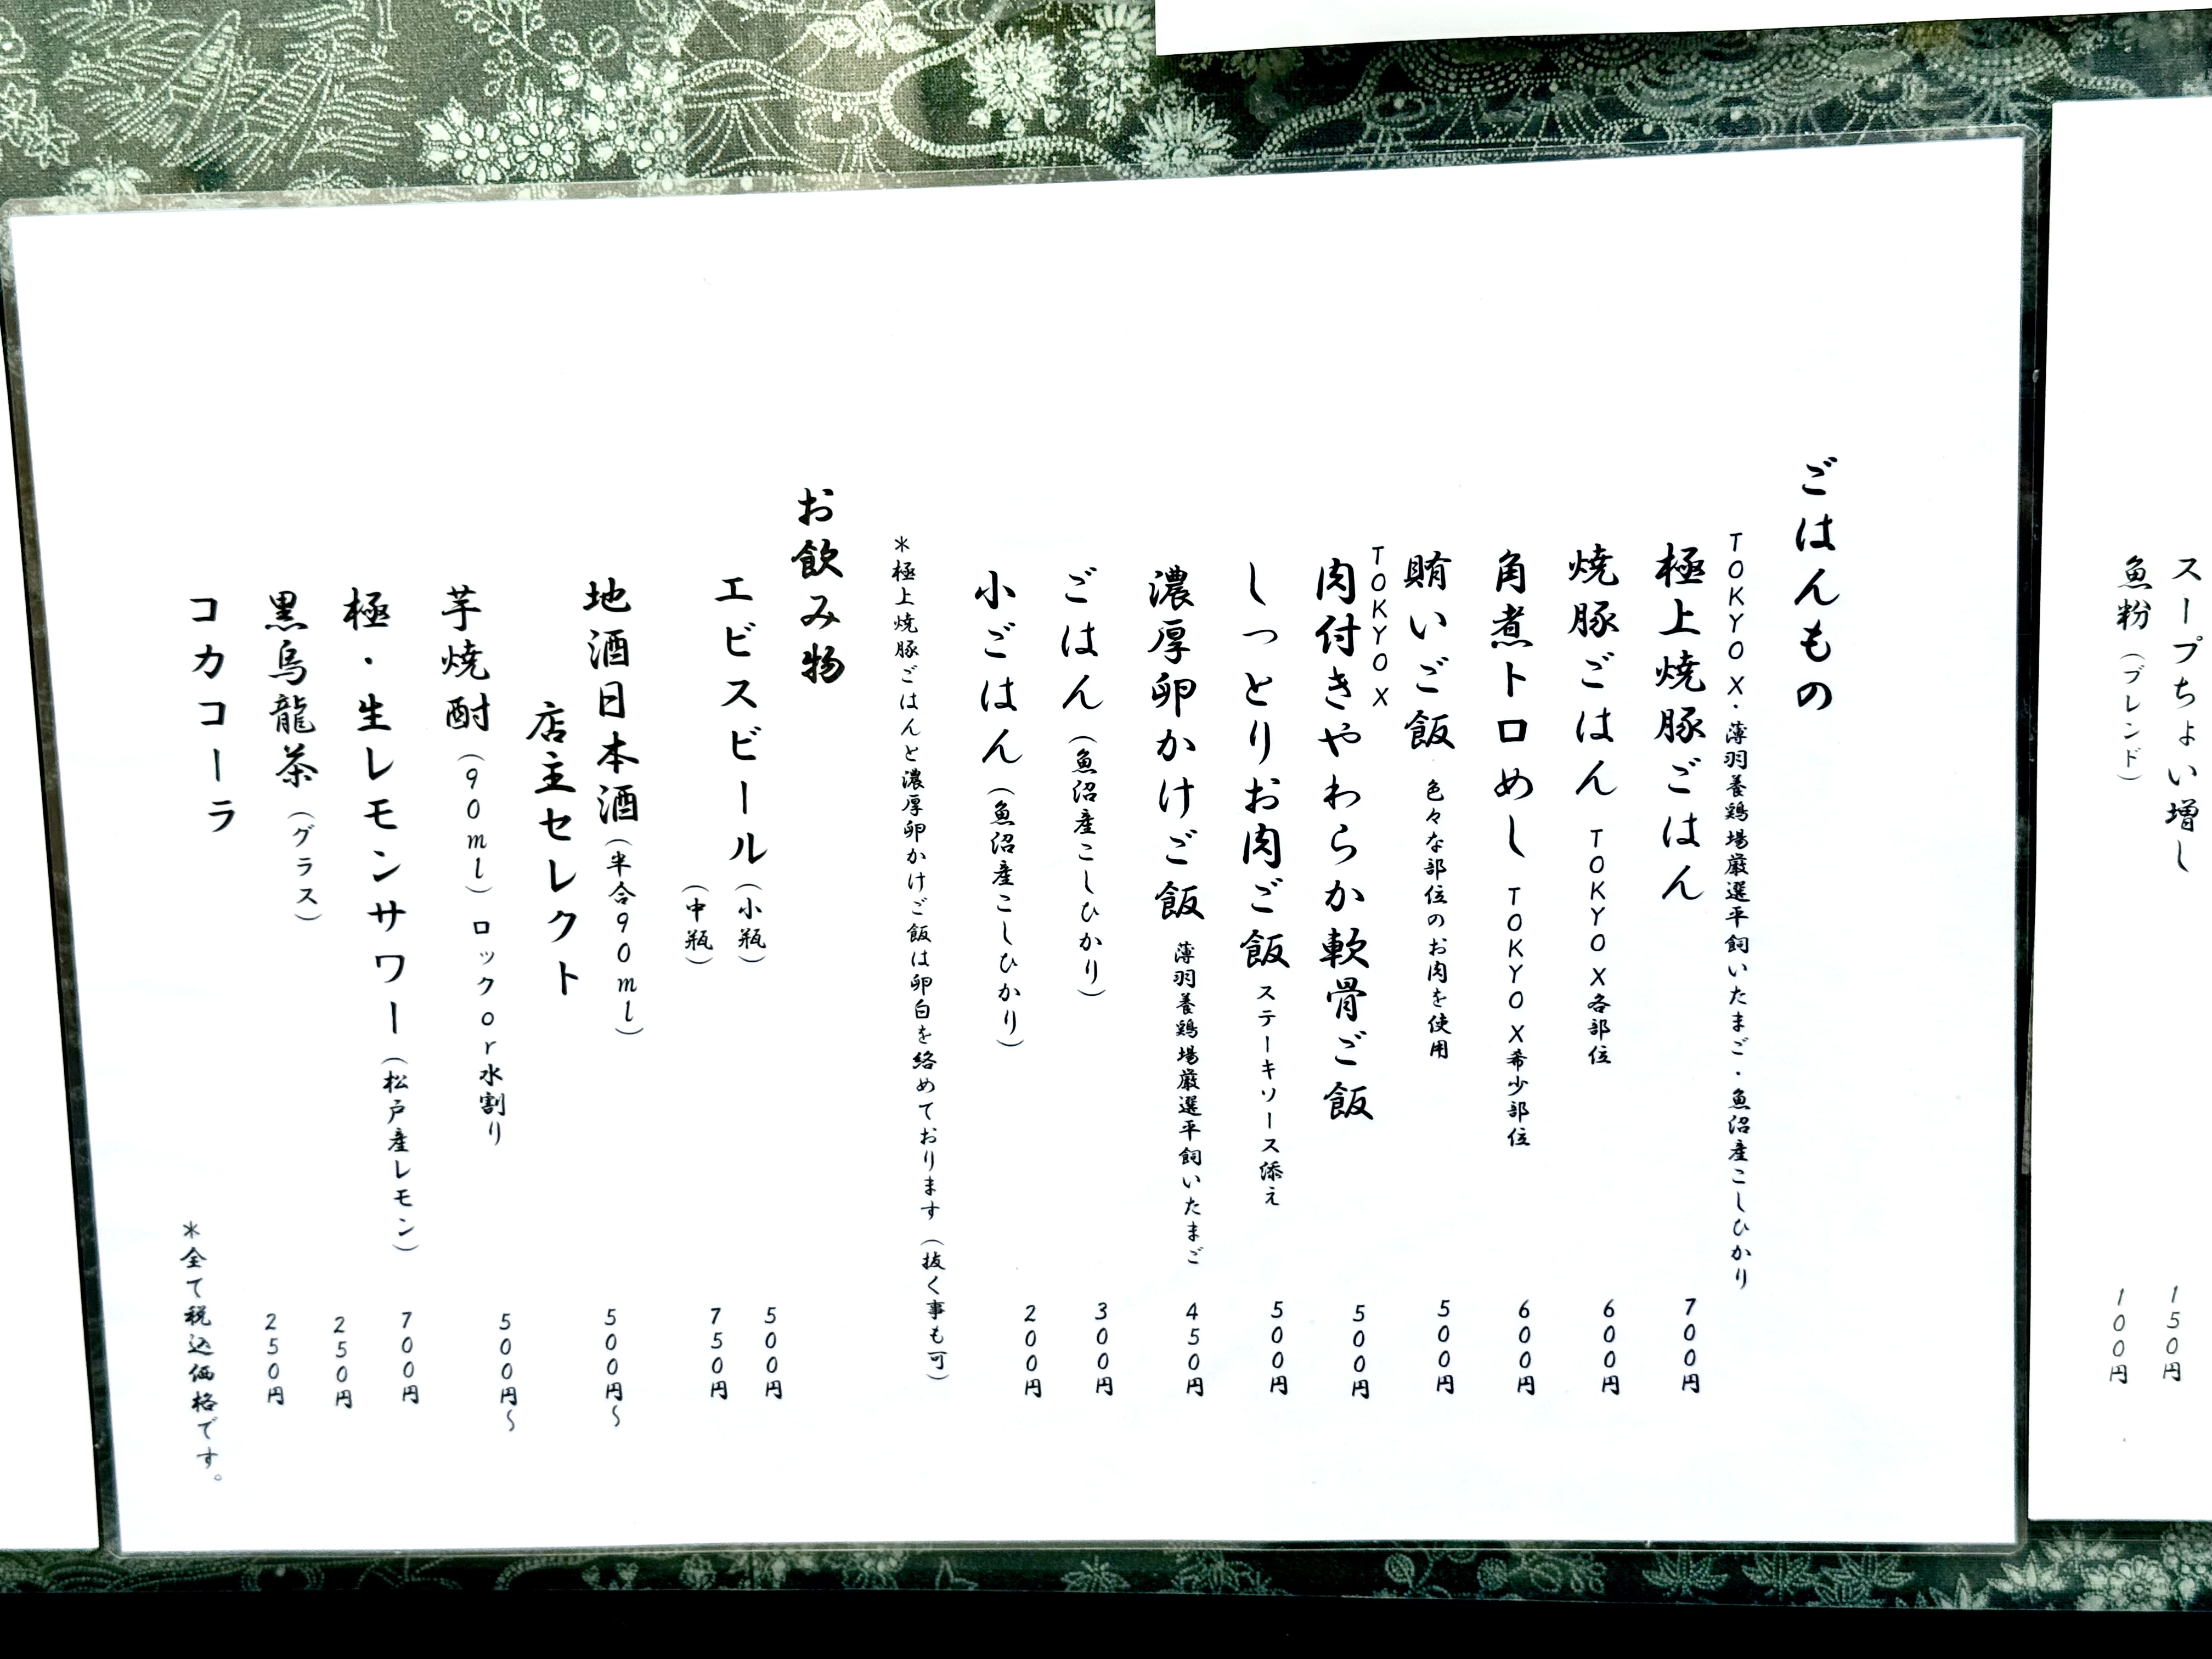 スープちょい増し 150円
魚粉（ブレンド） 100円
ごはんもの
TOKYO X・薄羽養鶏場厳選平飼いたまご・魚沼産こしひかり
極上焼豚ごはん 700円
焼豚ごはん TOKYO X各部位 600円
角煮トロめし TOKYO X希少部位 600円
賄いご飯 色々な部位のお肉を使用 500円
TOKYO X
肉付きやわらか軟骨ご飯 500円
しっとりお肉ご飯 ステーキソース添え 500円
濃厚卵かけご飯 薄羽養鶏場厳選平飼いたまご 450円
ごはん（魚沼産こしひかり） 300円
小ごはん（魚沼産こしひかり） 200円
＊極上焼豚ごはんと濃厚卵かけご飯は卵白を絡めております（抜く事も可）
お飲み物
エビスビール（小瓶） 500円
（中瓶） 750円
地酒日本酒（半合90ml） 500円～
店主セレクト
芋焼酎（90ml）ロックor水割り 500円～
極・生レモンサワー（松戸産レモン） 700円
黒烏龍茶（グラス） 250円
コカコーラ 250円
＊全て税込価格です。